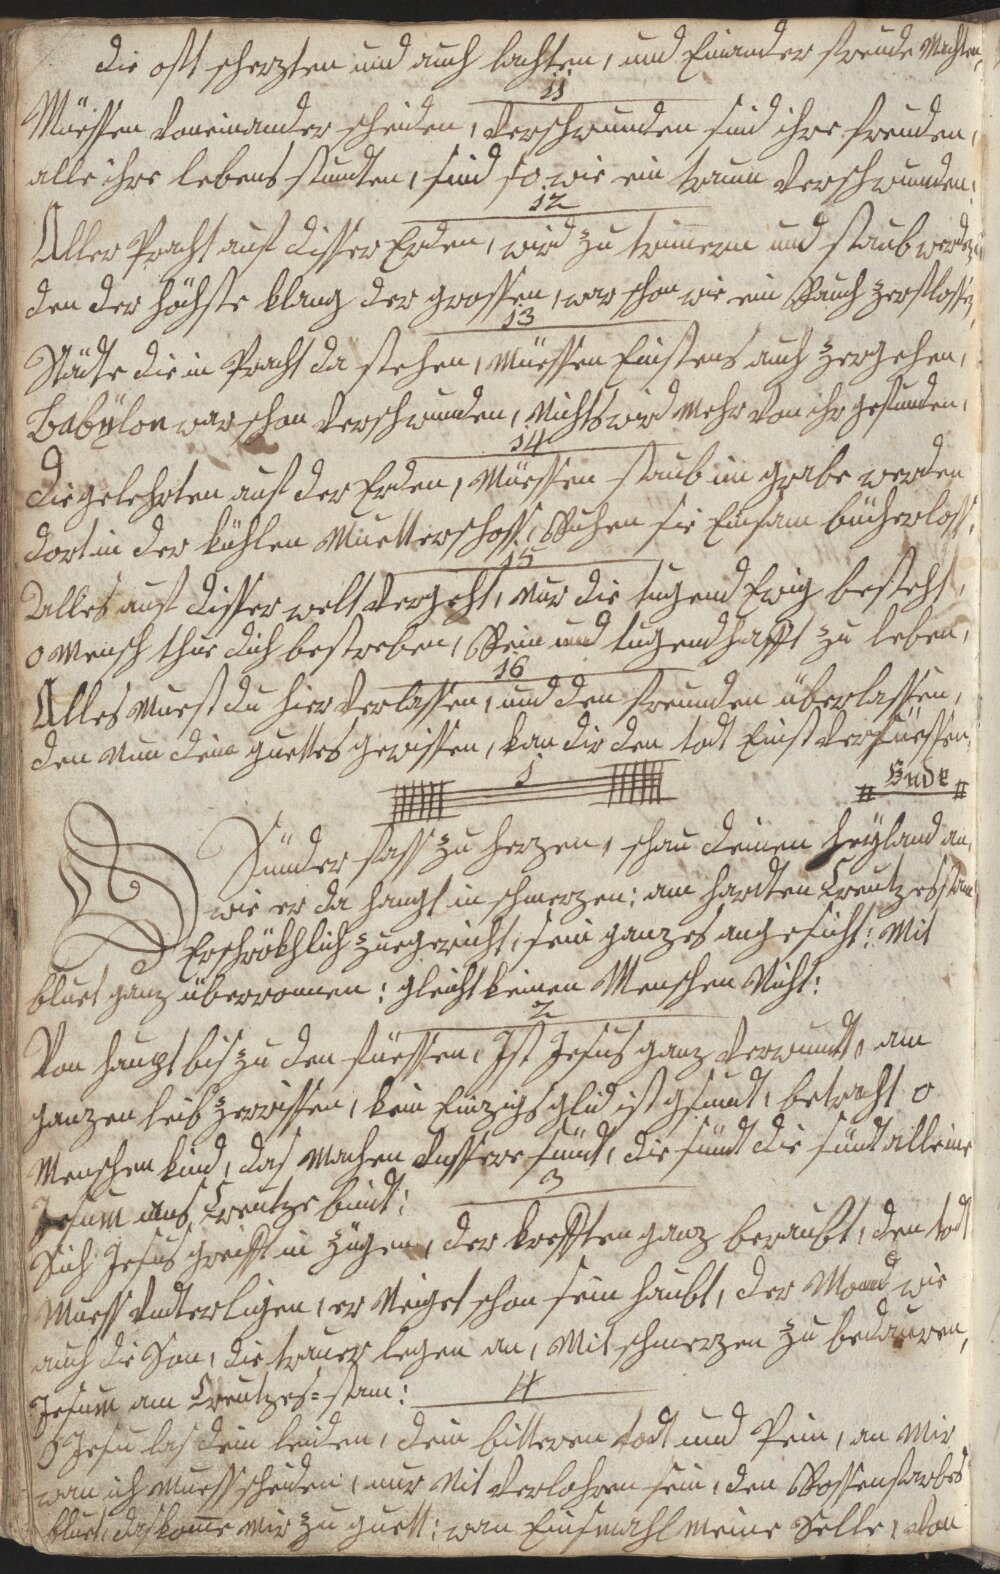 die oft scherzten und auch lachten, und Einander freude Machten,
11
Müessen Voneinander scheiden, Verschwunden sind ihre freuden,
alle ihre lebens stundten, sind so wie ein traum Verschwunden:
12
Aller Pracht auf disser Erden, wird zu trimern und staub werden
den der höchste klang der grossen, war schon wie ein Rauch zerflossen,
13
Städte die in Pracht da stehen, Müessen Einstens auch zergehen,
Babÿlon war schon Verschwunden, Nichts wird Mehr Von ihr gefunden,
14
die gelehrten auf der Erden, Müessen staub im grabe werden
dort in der kühlen Muetterschoss, Ruhen sie Einsam bücherloss:
15
Alles auf disser welt Vergeht, Nur die tugend Ewig besteht,
o Mensch thue dich bestreben, Rein und tugendhafft zu leben,
16
Alles Muest du hier Verlassen, und den freunden überlassen,
den Nun dein guettes gewissen, kan dir den todt Einst Versüessen,
Ende
1
O Sünder fass zu herzen, schau deinen heÿland an,
wie er da hangt in schmerzen: am hardten Creutzesstam
Erschrökhlich zuegericht, sein ganzes angesicht: Mit
bluet ganz überronnen: gleicht keinen Menschen Nicht:
2
Von haupt bis zu den füessen, Ist Jesus ganz Verwundt, am
ganzen leib zerrissen, kein Einzigs glid ist gsundt, betracht o
Menschen kind, das Machen Unssere sündt, die sündt die sündt alleine
Jesum ans Creutze bindt:
3
Sich Jesus greifft in zügen, der krefften ganz beraubt, den todt
Muess Undterligen, er Neiget schon sein haubt, der Mond wie
auch die Son, die trauer legen an, Mit schmerzen zu bedauren,
Jesum am Creutzes=stam:
4
O Jesu las dein leiden, dein bitteren todt und Pein, an Mir
wan ich Muess scheiden, nur Nit Verlohren sein, den Rossenfarbes
bluet, das kome Mir zu guett: wan Einsmahl Meine Selle, Von